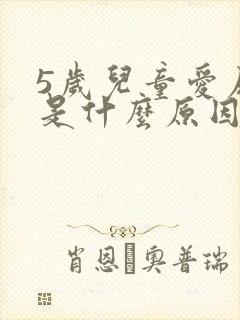 5歲兒童愛
是什麼原因
肖恩·奧普瑞